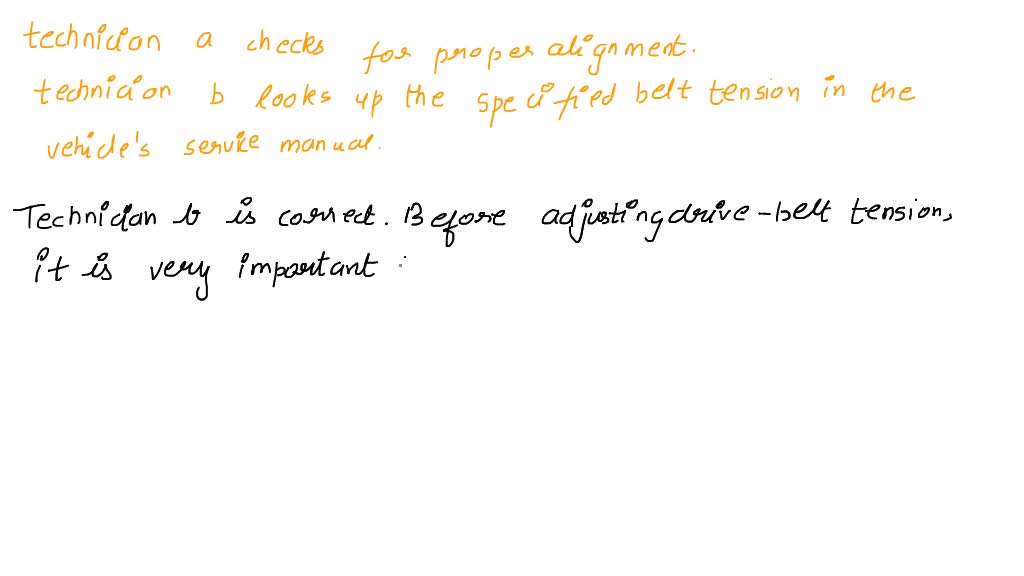 technician a checks for proper alignment.
technician b looks up the specified belt tension in the
vehicle's service manual.
Technician b is correct. Before adjusting drive-belt tension,
it is very important